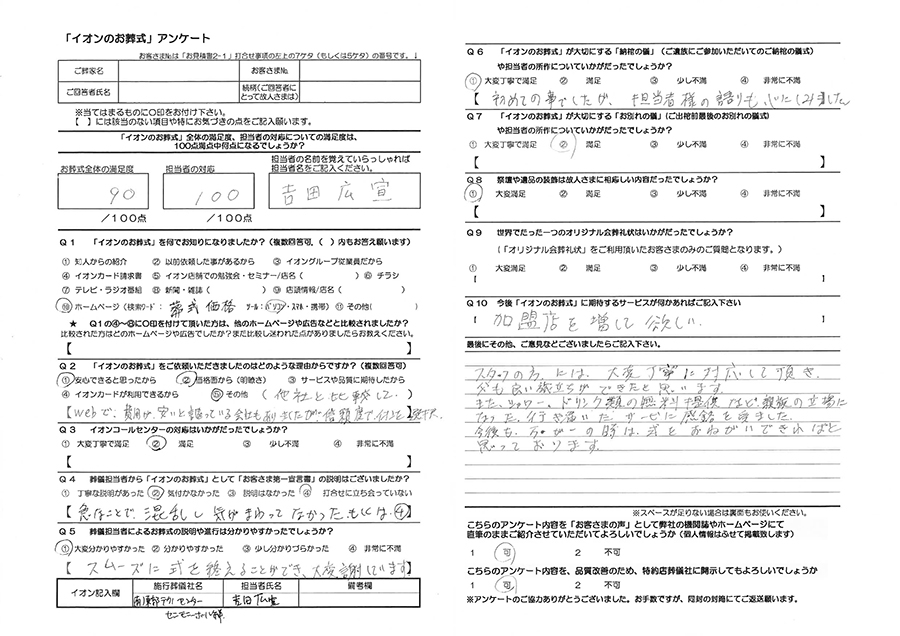 「イオンのお葬式」アンケート
お客さま№は「お見積書2-1」打合せ事項の左上の7ケタ(もしくは5ケタ)の番号です。↓
ご葬家名 お客さま№
ご回答者氏名 続柄(ご回答者にとって故人さまは)
※当てはまるものに○印をお付け下さい。
【 】には該当のない項目や特にお気づきの点をご記入願います。
「イオンのお葬式」全体の満足度、担当者の対応についての満足度は、
100点満点中何点になるでしょうか?
お葬式全体の満足度 担当者の対応 担当者の名前を覚えていらっしゃれば
担当者名をご記入ください。
90 100 吉田広宣
/100点 /100点
Q1 「イオンのお葬式」を何でお知りになりましたか?(複数回答可,( )内もお答え願います)
① 知人からの紹介 ② 以前依頼した事があるから ③ イオングループ従業員だから
④ イオンカード請求書 ⑤ イオン店舗での勉強会・セミナー/店名( ) ⑥ チラシ
⑦ テレビ・ラジオ番組 ⑧ 新聞・雑誌( ) ⑨ 店頭情報/店名( )
⑩ ホームページ(検索ワード: 葬式 価格 ツール:パソコン・スマホ・携帯) ⑪ その他( )
★ Q1の④~⑧に○印を付けて頂いた方は、他のホームページや広告などと比較されましたか?
比較された方はどのホームページや広告でしたか?また比較し迷われた点がありましたらお教えください。
【 】
Q2 「イオンのお葬式」をご依頼いただきましたのはどのような理由からですか?(複数回答可)
① 安心できると思ったから ② 価格面から(明瞭さ) ③ サービスや品質に期待したから
④ イオンカードが利用できるから ⑤ その他(他社と比較して。)
【webで、費用が安いと謳っている会社もありましたが
Q3 イオンコールセンターの対応はいかがだったでしょうか?
① 大変丁寧で満足 ② 満足 ③ 少し不満 ④ 非常に不満
【 】
Q4 葬儀担当者から「イオンのお葬式」として「お客さま第一宣言書」の説明はございましたか?
① 丁寧な説明があった ② 気付かなかった ③ 説明はなかった ④ 打合せに立ち会っていない
【急なことで、混乱し気がまわってなかった。もしくは④】
Q5 葬儀担当者によるお葬式の説明や進行は分かりやすかったでしょうか?
① 大変分かりやすかった ② 分かりやすかった ③ 少し分かりづらかった ④ 非常に不満
【スムーズに式を終えることができ、大変感謝しています】
イオン記入欄 施行葬儀社名 担当者氏名 備考欄
吉田広宣
Q6 「イオンのお葬式」が大切にする「納棺の儀」(ご遺族にご参加いただいてのご納棺の儀式)
や担当者の所作についていかがだったでしょうか?
① 大変丁寧で満足 ② 満足 ③ 少し不満 ④ 非常に不満
【初めての事でしたが、担当者様の語りも心にしみました
Q7 「イオンのお葬式」が大切にする「お別れの儀」(ご出棺前最後のお別れの儀式)
や担当者の所作についていかがだったでしょうか?
① 大変丁寧で満足 ② 満足 ③ 少し不満 ④ 非常に不満
【 】
Q8 祭壇や遺品の装飾は故人さまに相応しい内容だったでしょうか?
① 大変満足 ② 満足 ③ 少し不満 ④ 非常に不満
【 】
Q9 世界でたった一つのオリジナル会葬礼状はいかがだったでしょうか?
(「オリジナル会葬礼状」をご利用頂いたお客さまのみのご質問となります。)
① 大変満足 ② 満足 ③ 少し不満 ④ 非常に不満
[ ]
Q10 今後「イオンのお葬式」に期待するサービスが何かあればご記入下さい
[ 加盟店を増して欲しい。 ]
最後にその他、ご意見などございましたらご記入下さい。
スタッフの方には、大変丁寧に対応して頂き、
父も良い旅立ちができたと思います。
また、シャワー、ドリンク類の無料提供など、親族の立場に
なった、行き届いたサービスに感銘を受けました。
今後も、万が一の時は、式をおねがいできればと
思っております。
※スペースが足りない場合は裏面もお使いください。
こちらのアンケート内容を「お客さまの声」として弊社の機関誌やホームページにて
直筆のままご紹介させていただいてよろしいでしょうか(個人情報はふせて掲載致します)
1 可 2 不可
こちらのアンケート内容を、品質改善のため、特約店葬儀社に開示してもよろしいでしょうか
1 可 2 不可
※アンケートのご協力ありがとうございました。お手数ですが、同封の封筒にてご返送願います。